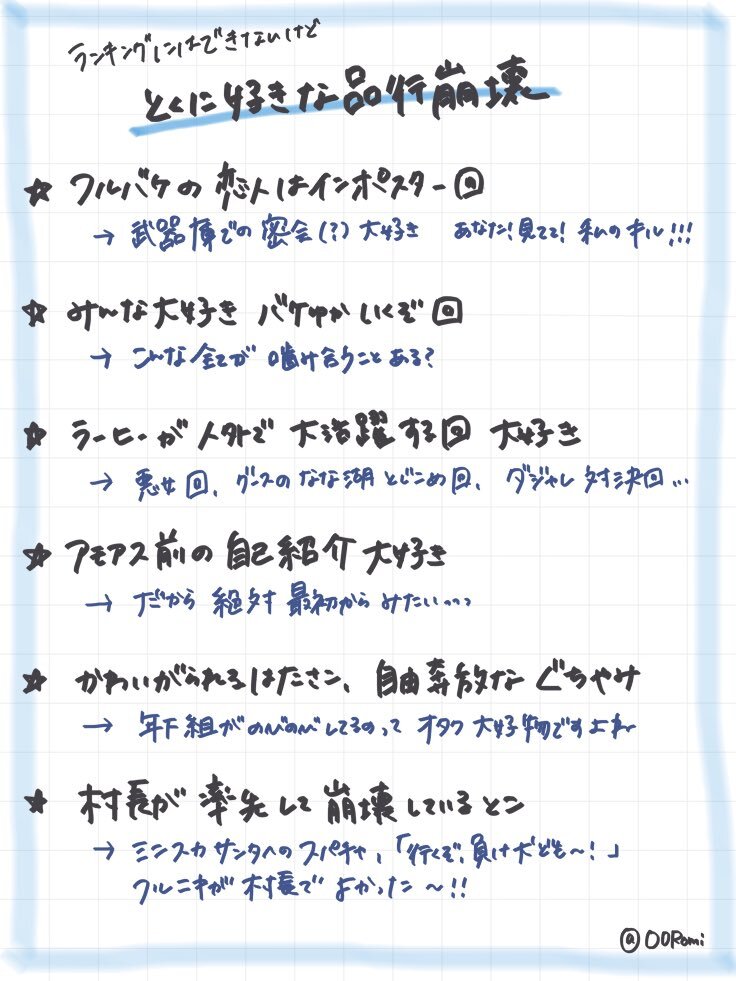 ランキングにはできないけど
とくに好きな品行崩壊
☆ フルバケの恋人はインポスター回
→ 武器庫での密会(?)大好き あなた!見てて!私のキル!!!
☆ みんな大好き バケゆかいくぞ回
→ こんな全てが噛み合うことある?
☆ ラーヒーが人外で大活躍する回 大好き
→ 悪女回、ダンスのなな湖とじこめ回、ダジャレ対決回…
☆ アモアス前の自己紹介大好き
→ だから絶対最初からみたい…
☆ かわいがられるはたさん、自由奔放なぐちやみ
→ 年下組がのびのびしてるのって オタク大好物ですよね〜
☆ 村長が率先して崩壊しているとこ
→ ミンスカサンタへのスパチャ、「行くぞ、負け犬ども〜!」
フルニキが村長でよかった〜!!
@OORomi